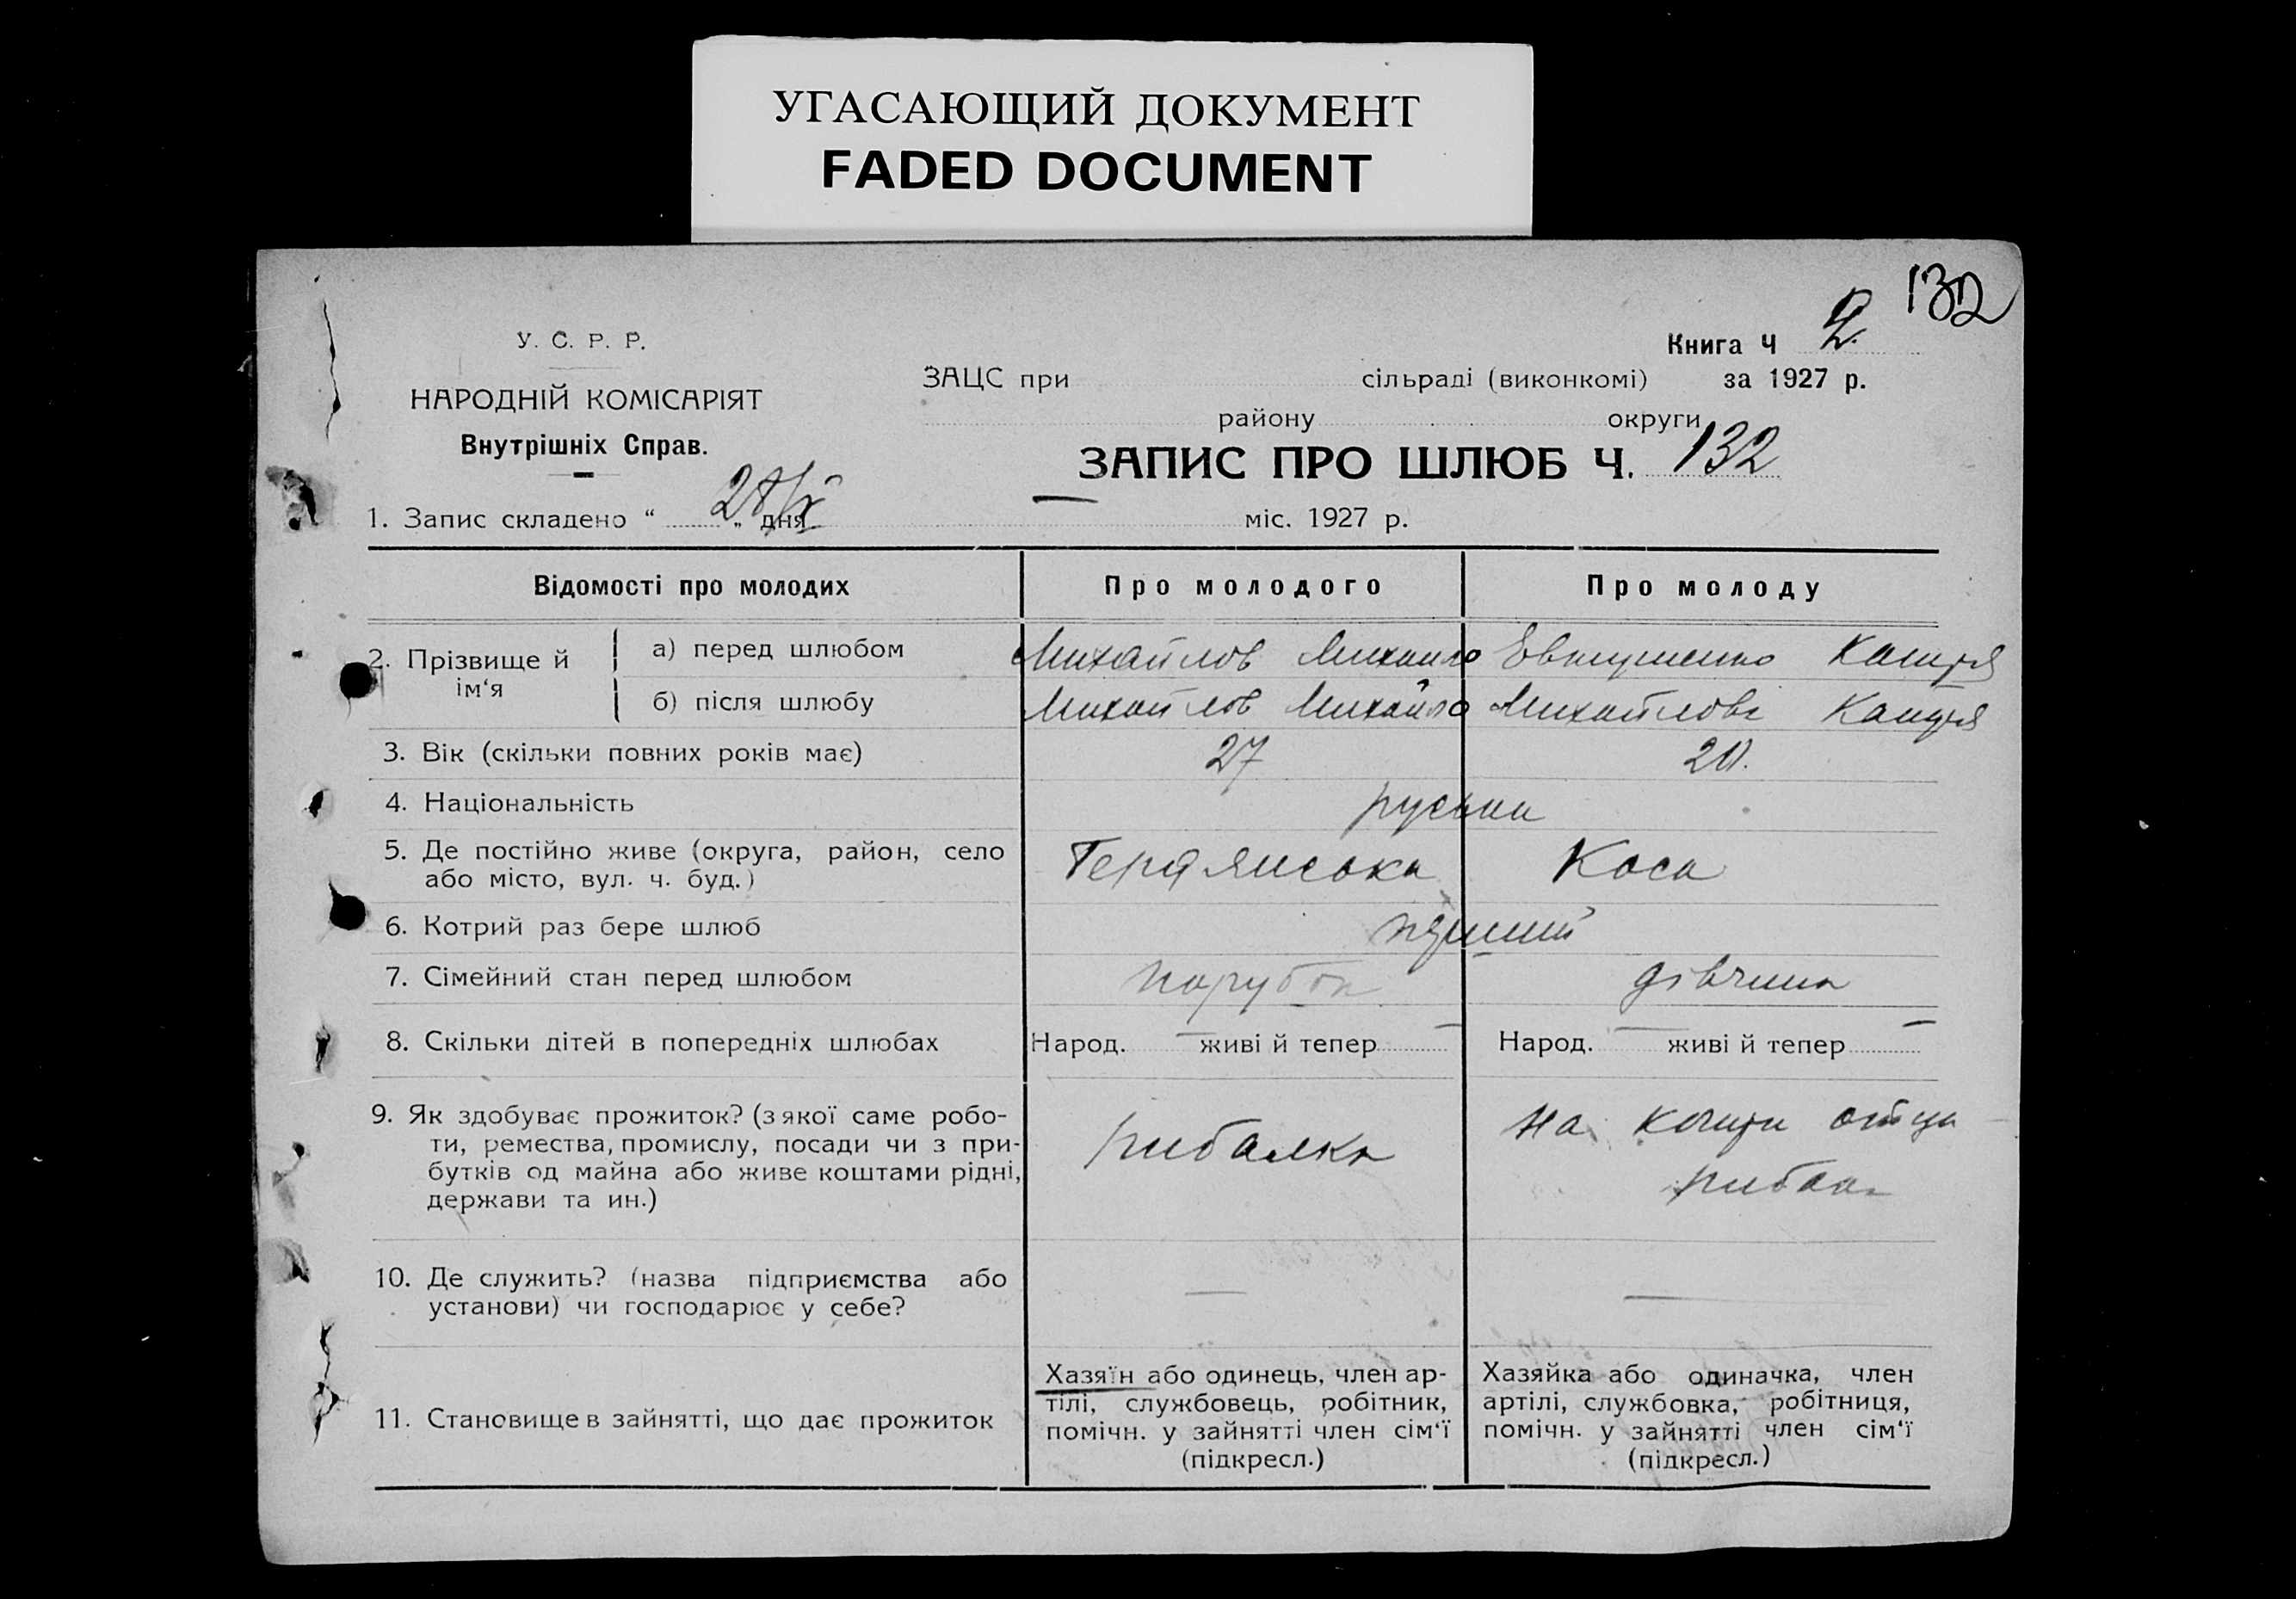 УГАСАЮЩИЙ ДОКУМЕНТ
FADED DOCUMENT
132
У. С. Р. Р.
Книга Ч 2.
НАРОДНІЙ КОМІСАРІЯТ
ЗАЦС при сільраді (виконкомі) за 1927 р.
району округи
Внутрішніх Справ.
ЗАПИС ПРО ШЛЮБ Ч. 132
1. Запис складено “ 28/X „ дня міс. 1927 р.
Відомості про молодих Про молодого Про молоду
2. Прізвище й ім‘я
а) перед шлюбом Михайлов Михайло
б) після шлюбу Михайлов Михайло Михайлова
3. Вік (скільки повних років має) 27 20.
4. Національність руськи
5. Де постійно живе (округа, район, село
або місто, вул. ч. буд.) Коса
6. Котрий раз бере шлюб перший
7. Сімейний стан перед шлюбом парубок дівчина
8. Скільки дітей в попередніх шлюбах Народ. — живі й тепер — Народ. — живі й тепер —
9. Як здобуває прожиток? (з якої саме робо-
ти, ремества, промислу, посади чи з при-
бутків од майна або живе коштами рідні,
держави та ин.)
рибалка
на кошти отца
10. Де служить? (назва підприємства або
установи) чи господарює у себе? — —
11. Становище в зайнятті, що дає прожиток
Хазяїн або одинець, член ар-
тілі, службовець, робітник,
помічн. у зайнятті член сім‘ї
(підкресл.)
Хазяйка або одиначка, член
артілі, службовка, робітниця,
помічн. у зайнятті член сім‘ї
(підкресл.)